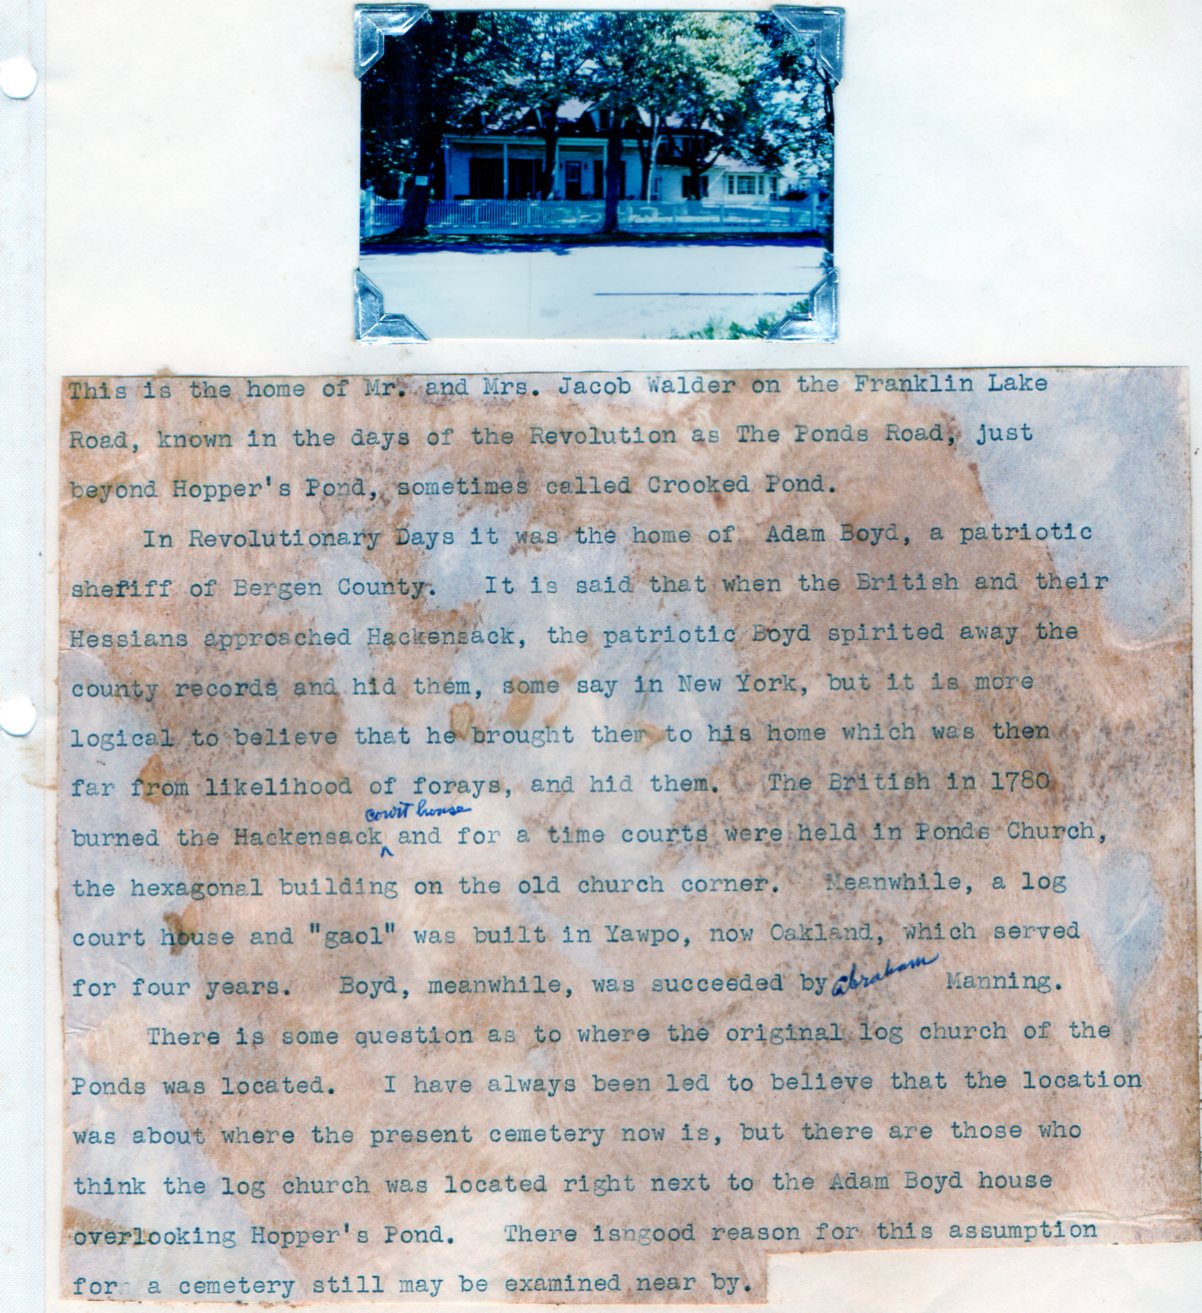 This is the home of Mr. and Mrs. Jacob Walder on the Franklin Lake
Road, known in the days of the Revolution as The Ponds Road, just
beyond Hopper's Pond, sometimes called Crooked Pond.
In Revolutionary Days it was the home of Adam Boyd, a patriotic
sheriff of Bergen County. It is said that when the British and their
Hessians approached Hackensack, the patriotic Boyd spirited away the
county records and hid them, some say in New York, but it is more
logical to believe that he brought them to his home which was then
far from likelihood of forays, and hid them. The British in 1780
court house
burned the Hackensack ^ and for a time courts were held in Ponds Church,
the hexagonal building on the old church corner. Meanwhile, a log
court house and "gaol" was built in Yawpo, now Oakland, which served
for four years. Boyd, meanwhile, was succeeded by abraham Manning.
There is some question as to where the original log church of the
Ponds was located. I have always been led to believe that the location
was about where the present cemetery now is, but there are those who
think the log church was located right next to the Adam Boyd house
overlooking Hopper's Pond. There isngood reason for this assumption
for a cemetery still may be examined near by.